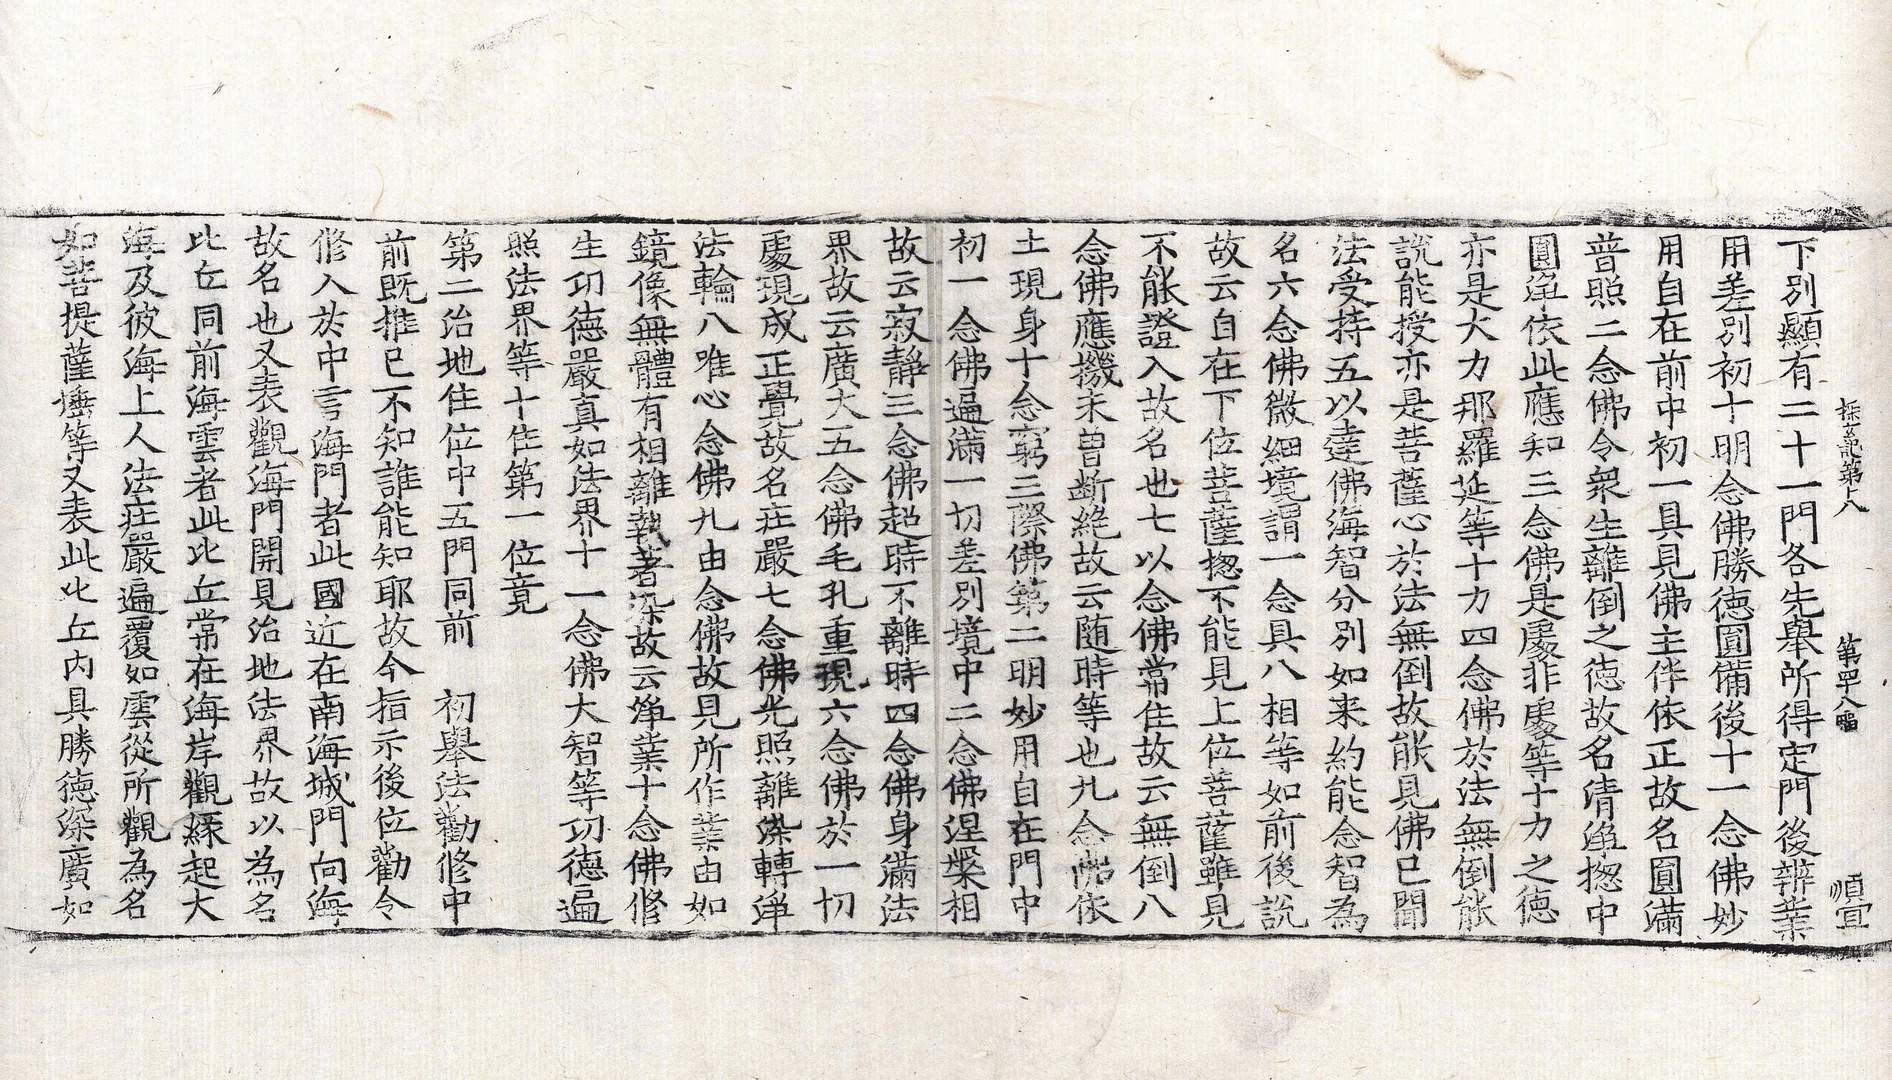 探玄記第十八 第四十八幅 順宣
下別顯有二十一門各先舉所得定門後辨業
用差別初十明念佛勝德圓備後十一念佛妙
用自在前中初一具見佛主伴依正故名圓滿
普照二念佛令衆生離倒之德故名清淨揔中
圓淨依此應知三念佛是處非處等十力之德
亦是大力那羅延等十力四念佛於法無倒能
說能授亦是菩薩心於法無倒故能見佛已聞
法受持五以達佛海智分別如来約能念智為
名六念佛微細境謂一念具八相等如前後說
故云自在下位菩薩揔不能見上位菩薩雖見
不能證入故名也七以念佛常住故云無倒八
念佛應機未曾断絶故云随時等也九念佛依
土現身十念窮三際佛第二明妙用自在門中
初一念佛遍滿一切差別境中二念佛涅槃相
故云寂靜三念佛超時不離時四念佛身滿法
界故云廣大五念佛毛孔重現六念佛於一切
處現成正覺故名莊嚴七念佛光照離染轉淨
法輪八唯心念佛九由念佛故見所作業由如
鏡像無體有相離執著染故云淨業十念佛修
生功德嚴真如法界十一念佛大智等功德遍
照法界等十住第一位竟
第二治地住位中五門同前 初舉法勸修中
前既推已不知誰能知耶故今指示後位勸令
修入於中言海門者此國近在南海城門向海
故名也又表觀海門開見治地法界故以為名
比丘同前海雲者此比丘常在海岸觀緣起大
海及彼海上人法莊嚴遍覆如雲從所觀為名
如菩提薩埵等又表此比丘內具勝德深廣如